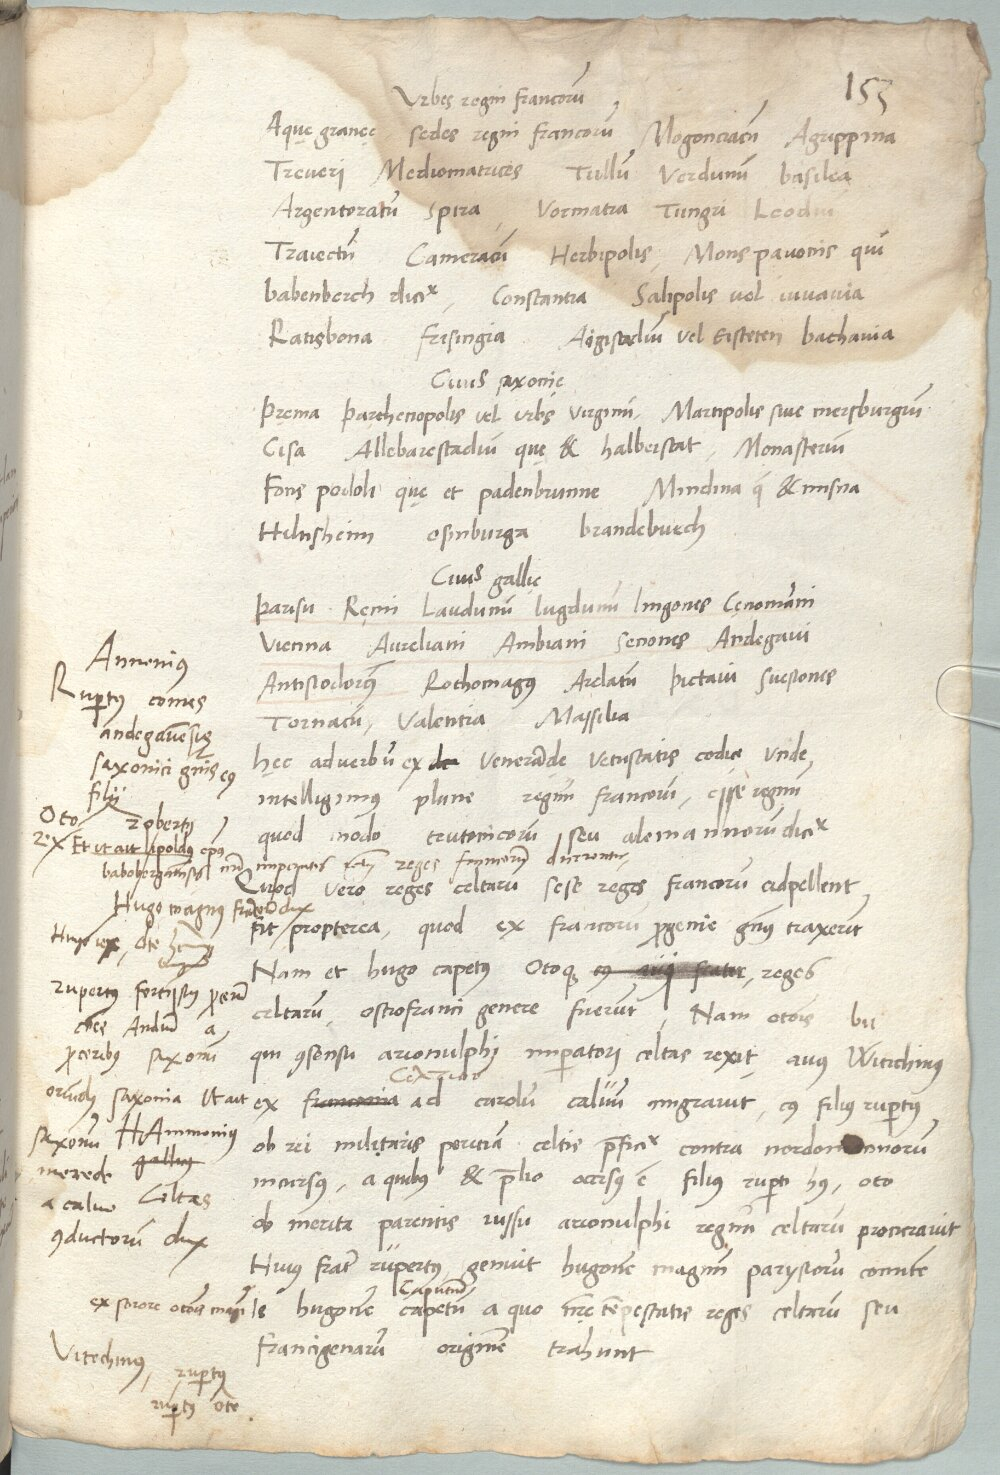 153
Urbes regni francorū
Aquę granęę sedes regni francorū Mogonciacū Agrippina
Treueri Mediomatrices Tullū Verdunū basilea
Argentoratū Spira Vormatia Tungri Leodiū
Traiectū Cameracū Herbipolis, Mons pauonis qui
babenberch dicix, Constantia Salipolis uel iuuauia
Ratisbona Frisingia Aigistediū vel Eisteten bathauia
Ciuis saxonie
Prema Parthenopolis vel urbs virginū, Martipolis siue mersburgiū
Cisa Allebarestadiū quę & halberstat, Monasteriū
Fons podoli quę et padenbrunne Mindina q̄ & misna
Hilnsheim osinburga brandeburch
Ciuis gallię
Parisii Remi Laudunū lugdunū lingones Cenomāni
Vienna Aureliani Ambiani Senones Andegaui
Antisiodorū Rothomagus Arelatū Pictaui Suesiones
Tornacū, Valentia Massilia
hęc ad verbū ex venerāde vetustatis codice vnde,
intelligimus plane regnū francorū, esse regnū
quod modo teutonicorum seu alemannorū dicix
Quod vero reges celtarū sese reges francorū adpellent,
fit propterea, quod ex francorū progenie genus traxerūt
Nam et hugo capetus Otoq, reges
celtarū, ostrofranci genere fuerūt, Nam otois
qui cōsensu arionulphi imperatori celtas rexit, auus Witichinus
ex ad carolū caluū migrauit, cuius filius rupertus
ob rei militaris peritiā celtis prefic contra nordomannorū
incursus, a quibus & prelio occisus ē filius ruperti huius, oto
ob merita parentis iussu arionulphi regnū celtarū procurauit
Huius frater rupertus genuit hugonē magnū parysiorū comitē
Is hugonē capetū a quo nr̄ę tēpestatis reges celtarū seu
Capitonē
francigenarū originē trahunt
Annonius
Rupertus comes
andegauēsis
saxonici gnis eius
filii
Oto robertus
rex Et ut ait
babobergensis
Hugo magnus dux
rupertus fortissimus
saxonū
saxonia Ut ait
saxonū HAmmonius
merede gallus
a caluo Celtas
cōductorū dux
ex sorore otonis magni
Vitechinus, rupertus
rupertus oto.